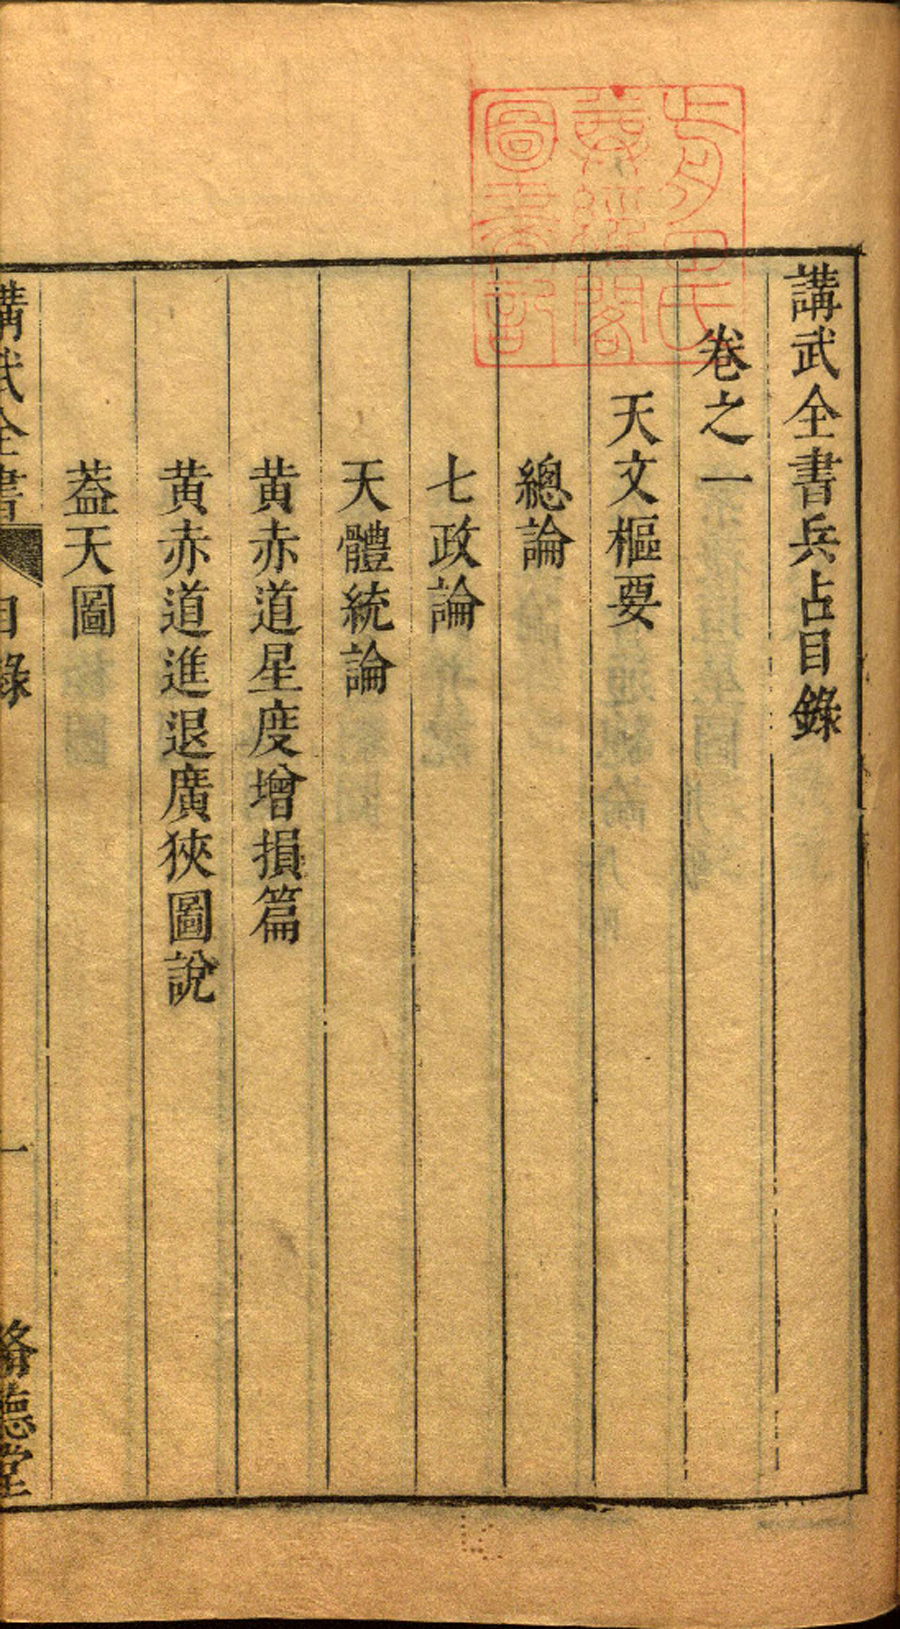 講武全書兵占目錄
卷之一
天文樞要
總論
七政論
天體統論
黃赤道星度增損篇
黃赤道進退廣狹圖說
葢天圖
講武全書 目錄 一